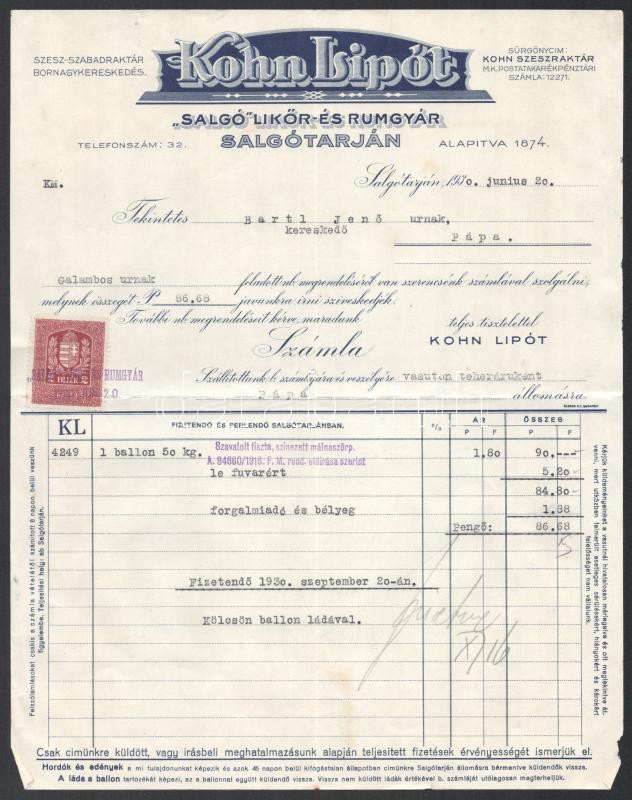 SZESZ-SZABADRAKTÁR
BORNAGYKERESKEDÉS.
Kohn Lipót
SÜRGÖNYCIM:
KOHN SZESZRAKTÁR
M.K. POSTATAKARÉKPÉNZTÁRI
SZÁMLA: 12271.
„SALGÓ" LIKŐR-ÉS RUMGYÁR
SALGÓTARJÁN
TELEFONSZÁM: 32.
ALAPITVA 1874.
Km.
Salgótarján, 1930. junius 20.
Tekintetes Bartl Jenő urnak,
kereskedő
Pápa.
Galambos urnak feladott nb. megrendeléséről van szerencsénk számlával szolgálni,
melynek összegét P. 86.68 javunkra irni sziveskedjék.
További nb. megrendeléseit kérve, maradunk teljes tisztelettel
KOHN LIPÓT
Számla
RUMGYÁR
Szállitottunk b. számlájára és veszélyére vasuton teheráruként
Pápa állomásra.
KL FIZETENDŐ ÉS PERLENDŐ SALGÓTARJÁNBAN. % ÁR ÖSSZEG
P F P F
4249 1 ballon 50 kg. Szavatolt tiszta, szinezett málnaszörp. 1.80 90.---
A. 84660/1916. F. M. rend. előírása szerint
le fuvarért 5.20
84.80
forgalmiadó és bélyeg 1.88
Pengő: 86.68
Fizetendő 1930. szeptember 20-án.
Kölcsön ballon ládával.
XI/16
Felszólamlásokat csakis a számla vételétől számitott 8 napon belül veszünk
figyelembe. Teljesitési hely: ab Salgótarján.
Kérjük küldeményeinket a vasutnál hivatalosan mérlegelve és ott megtekintve át-
venni, mert utközben felmerült esetleges sérülésekért, hiányokért és károkért
felelősséget nem vállalunk.
Csak cimünkre küldött, vagy irásbeli meghatalmazásunk alapján teljesitett fizetések érvényességét ismerjük el.
Hordók és edények a mi tulajdonunkat képezik és azok 45 napon belül kifogástalan állapotban cimünkre Salgótarján állomásra bérmentve küldendők vissza.
A láda a ballon tartozékát képezi, az a ballonnal együtt küldendő vissza. Vissza nem küldött ládák értékével b. számláját utólagosan megterheljük.